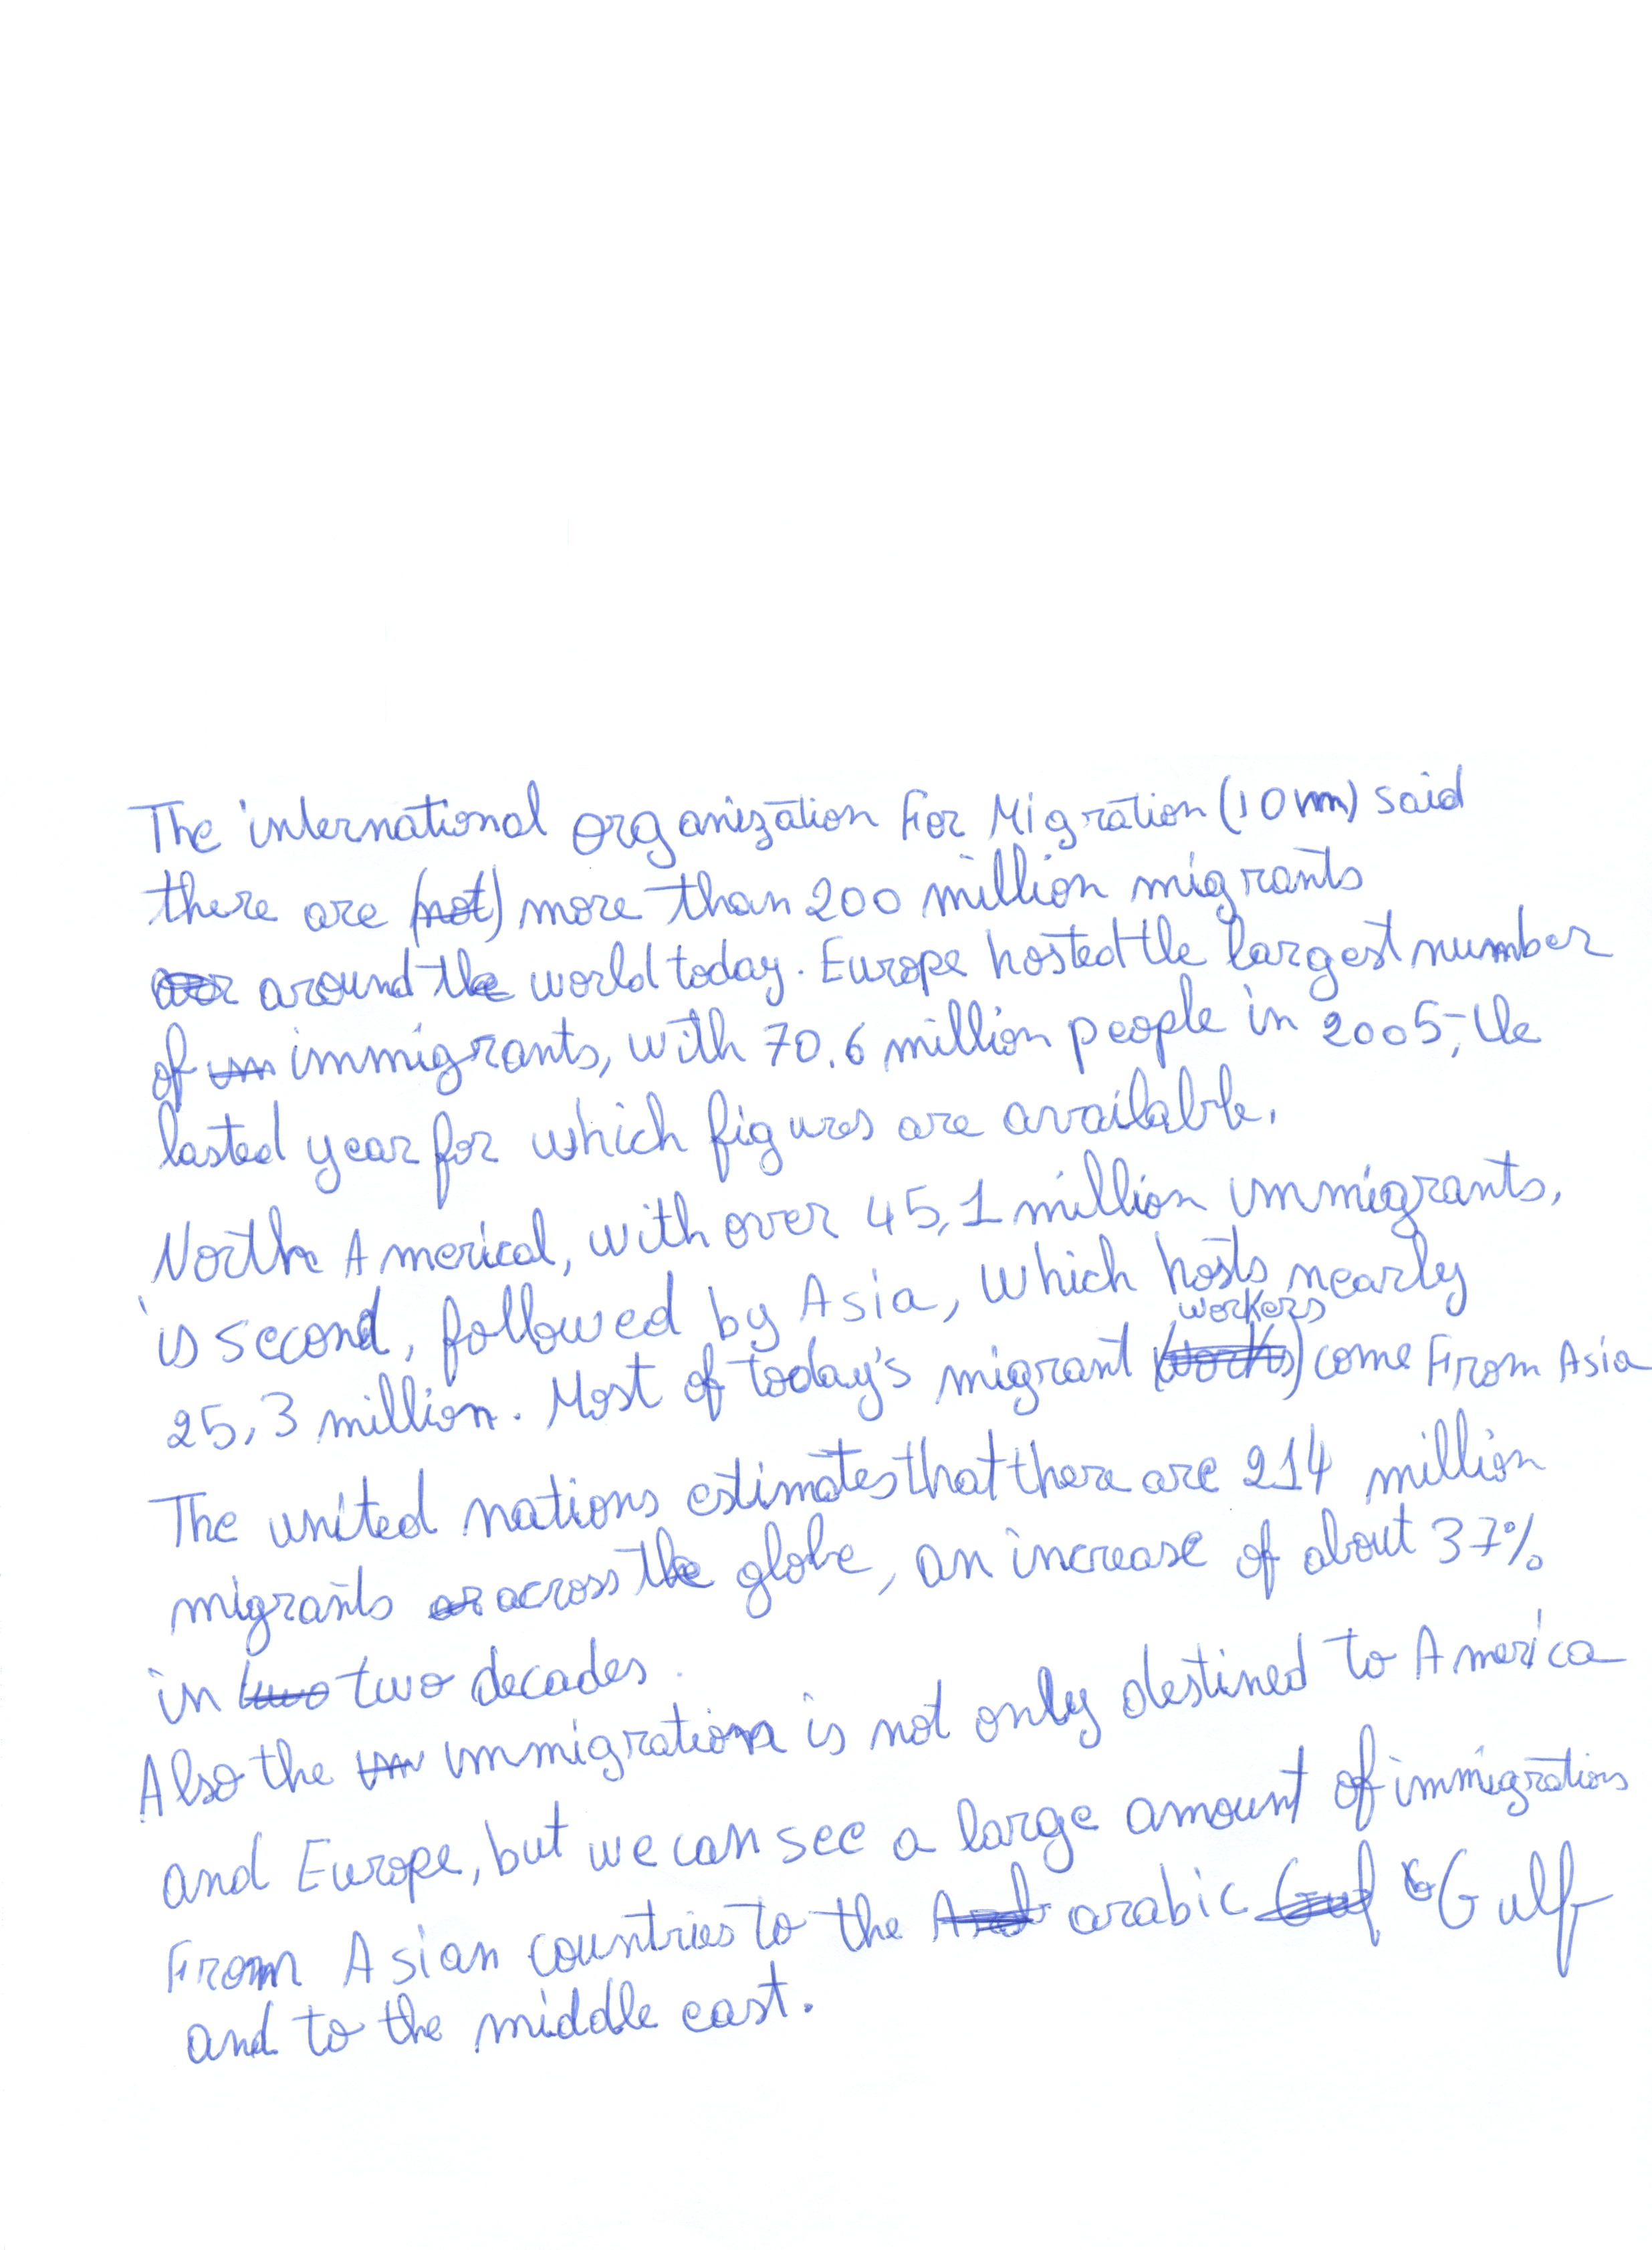 The international organization For Migration (IOM) said
there are (not) more than 200 million migrants
around the world today. Europe hosted the largest number
of im immigrants, with 70.6 million people in 2005, the
lasted year for which figures are available.
North Americal, with over 45,1 million immigrants,
is second, followed by Asia, which hosts nearly
workers
25,3 million. Most of today's migrant (works) come From Asia
The united nations estimates that there are 214 million
migrants ar across the globe, an increase of about 37%
in two two decades.
Also the im immigration is not only destined to America
and Europe, but we can see a large amount of immigrations
From Asian countries to the Arab arabic Guf Gulf
and to the middle east.